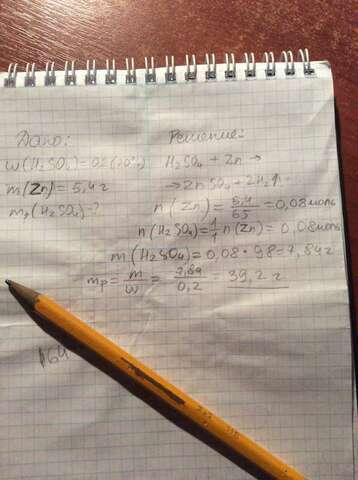 Дано:
W(H₂SO₄)=0,2(20%)
m(Zn)=5,4г
mр(H₂SO₄)-?
Решение:
H₂SO₄ + Zn →
→ZnSO₄+2H₂↑
n(Zn)=5,4/65=0,08моль
n(H₂SO₄)=1/1 n(Zn)=0,08моль
m(H₂SO₄)=0,08·98=7,84г
mр=m/W=7,84/0,2=39,2г